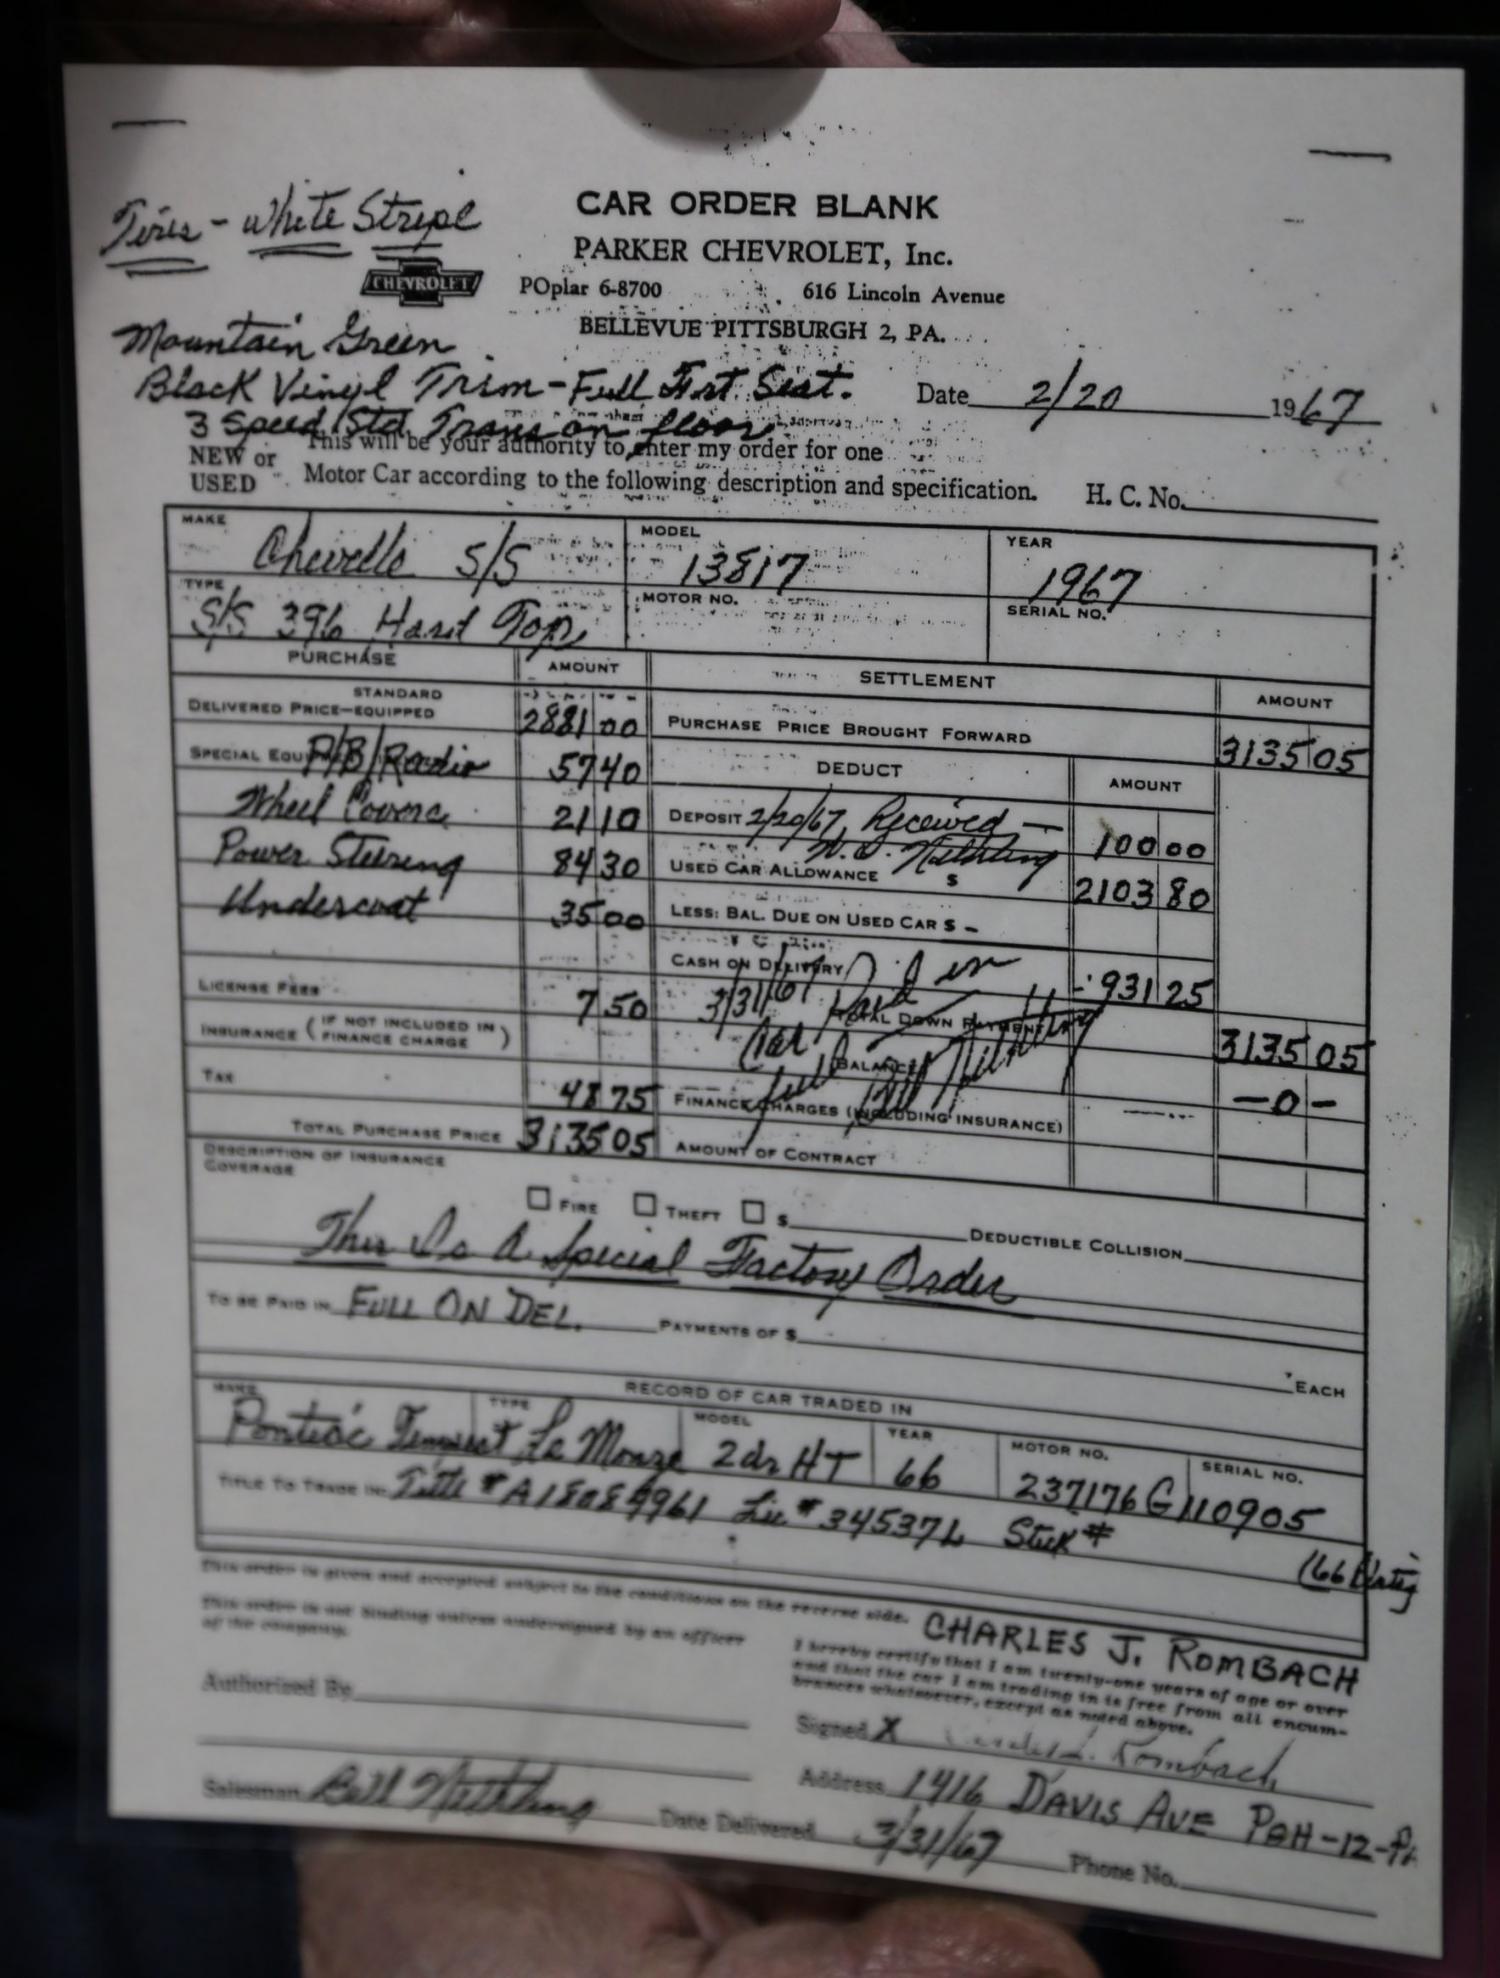 Tires - White Stripe
CAR ORDER BLANK
PARKER CHEVROLET, Inc.
CHEVROLET
POplar 6-8700 616 Lincoln Avenue
BELLEVUE PITTSBURGH 2, PA.
Mountain Green
Black Vinyl Trim - Full Frt. Seat.
Date 2/20 1967
3 Speed Std Trans on floor
NEW or USED
This will be your authority to enter my order for one
Motor Car according to the following description and specification.
H. C. No.
MAKE Chevelle S/S MODEL 13817 YEAR 1967
TYPE S/S 396 Hard Top MOTOR NO. SERIAL NO.
PURCHASE AMOUNT SETTLEMENT AMOUNT
STANDARD
DELIVERED PRICE—EQUIPPED 2881 00 PURCHASE PRICE BROUGHT FORWARD 3135 05
P/B/Radio 57 40 DEDUCT AMOUNT
Wheel Covers 21 10 DEPOSIT 2/20/67, Received — 100 00
Power Steering 84 30 USED CAR ALLOWANCE $ 2103 80
Undercoat 35 00 LESS: BAL. DUE ON USED CAR $ -
CASH ON DELIVERY 931 25
LICENSE FEES 7 50 3/31/67 Paid in TOTAL DOWN PAYMENT 3135 05
INSURANCE (IF NOT INCLUDED IN FINANCE CHARGE) full BALANCE -0-
TAX 48 75 FINANCE CHARGES (INCLUDING INSURANCE)
TOTAL PURCHASE PRICE 3135 05 AMOUNT OF CONTRACT
DESCRIPTION OF INSURANCE
COVERAGE
FIRE THEFT $ DEDUCTIBLE COLLISION
This Is A Special Factory Order
TO BE PAID IN FULL ON DEL. PAYMENTS OF $ EACH
RECORD OF CAR TRADED IN
MAKE TYPE MODEL YEAR MOTOR NO. SERIAL NO.
Pontiac Tempest Le Mans 2dr HT 66 237176G110905
TITLE TO TRADE IN: Title # Lic # 34537L Stck #
This order is given and accepted subject to the conditions on the reverse side.
This order is not binding unless undersigned by an officer
of the company.
CHARLES J. ROMBACH
I hereby certify that I am twenty-one years of age or over
and that the car I am trading in is free from all encum-
brances whatsoever, except as noted above.
Authorized By
Signed X Rombach
Address 1416 DAVIS AVE PGH-12-PA
Salesman Bill Date Delivered 3/31/67 Phone No.